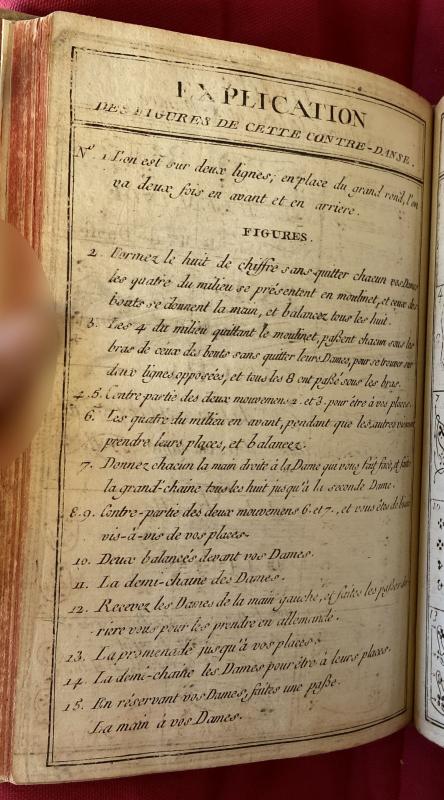 EXPLICATION
DES FIGURES DE CETTE CONTRE-DANSE.
N.º 1. L'on est sur deux lignes; en place du grand rond, l'on
va deux fois en avant et en arriere.
FIGURES.
2. Formez le huit de chiffre sans quitter chacun vos Dames
les quatre du milieu se présentent en moulinet, et ceux des
bouts se donnent la main, et balancez tous les huit.
3. Les 4 du milieu quittant le moulinet, passent chacun sous les
bras de ceux des bouts sans quitter leurs Dames, pour se trouver sur
deux lignes opposées, et tous les 8 ont passé sous les bras.
4.5. Contre partie des deux mouvemens 2. et 3. pour être à vos places.
6. Les quatre du milieu en avant, pendant que les autres vienent
prendre leurs places, et balancez.
7. Donnez chacun la main droite à la Dame qui vous fait face, et faites
la grand-chaine tous les huit jusqu'à la seconde Dame.
8.9. Contre-partie des deux mouvemens 6. et 7., et vous êtes de
vis-à-vis de vos places.
10. Deux balancés devant vos Dames.
11. La demi-chaine des Dames.
12. Recevez les Dames de la main gauche, et faites les passer der-
riere vous pour les prendre en allemande.
13. La promenade jusqu'à vos places.
14. La demi-chaine les Dames pour être à leurs places.
15. En réservant vos Dames, faites une passe.
La main à vos Dames.